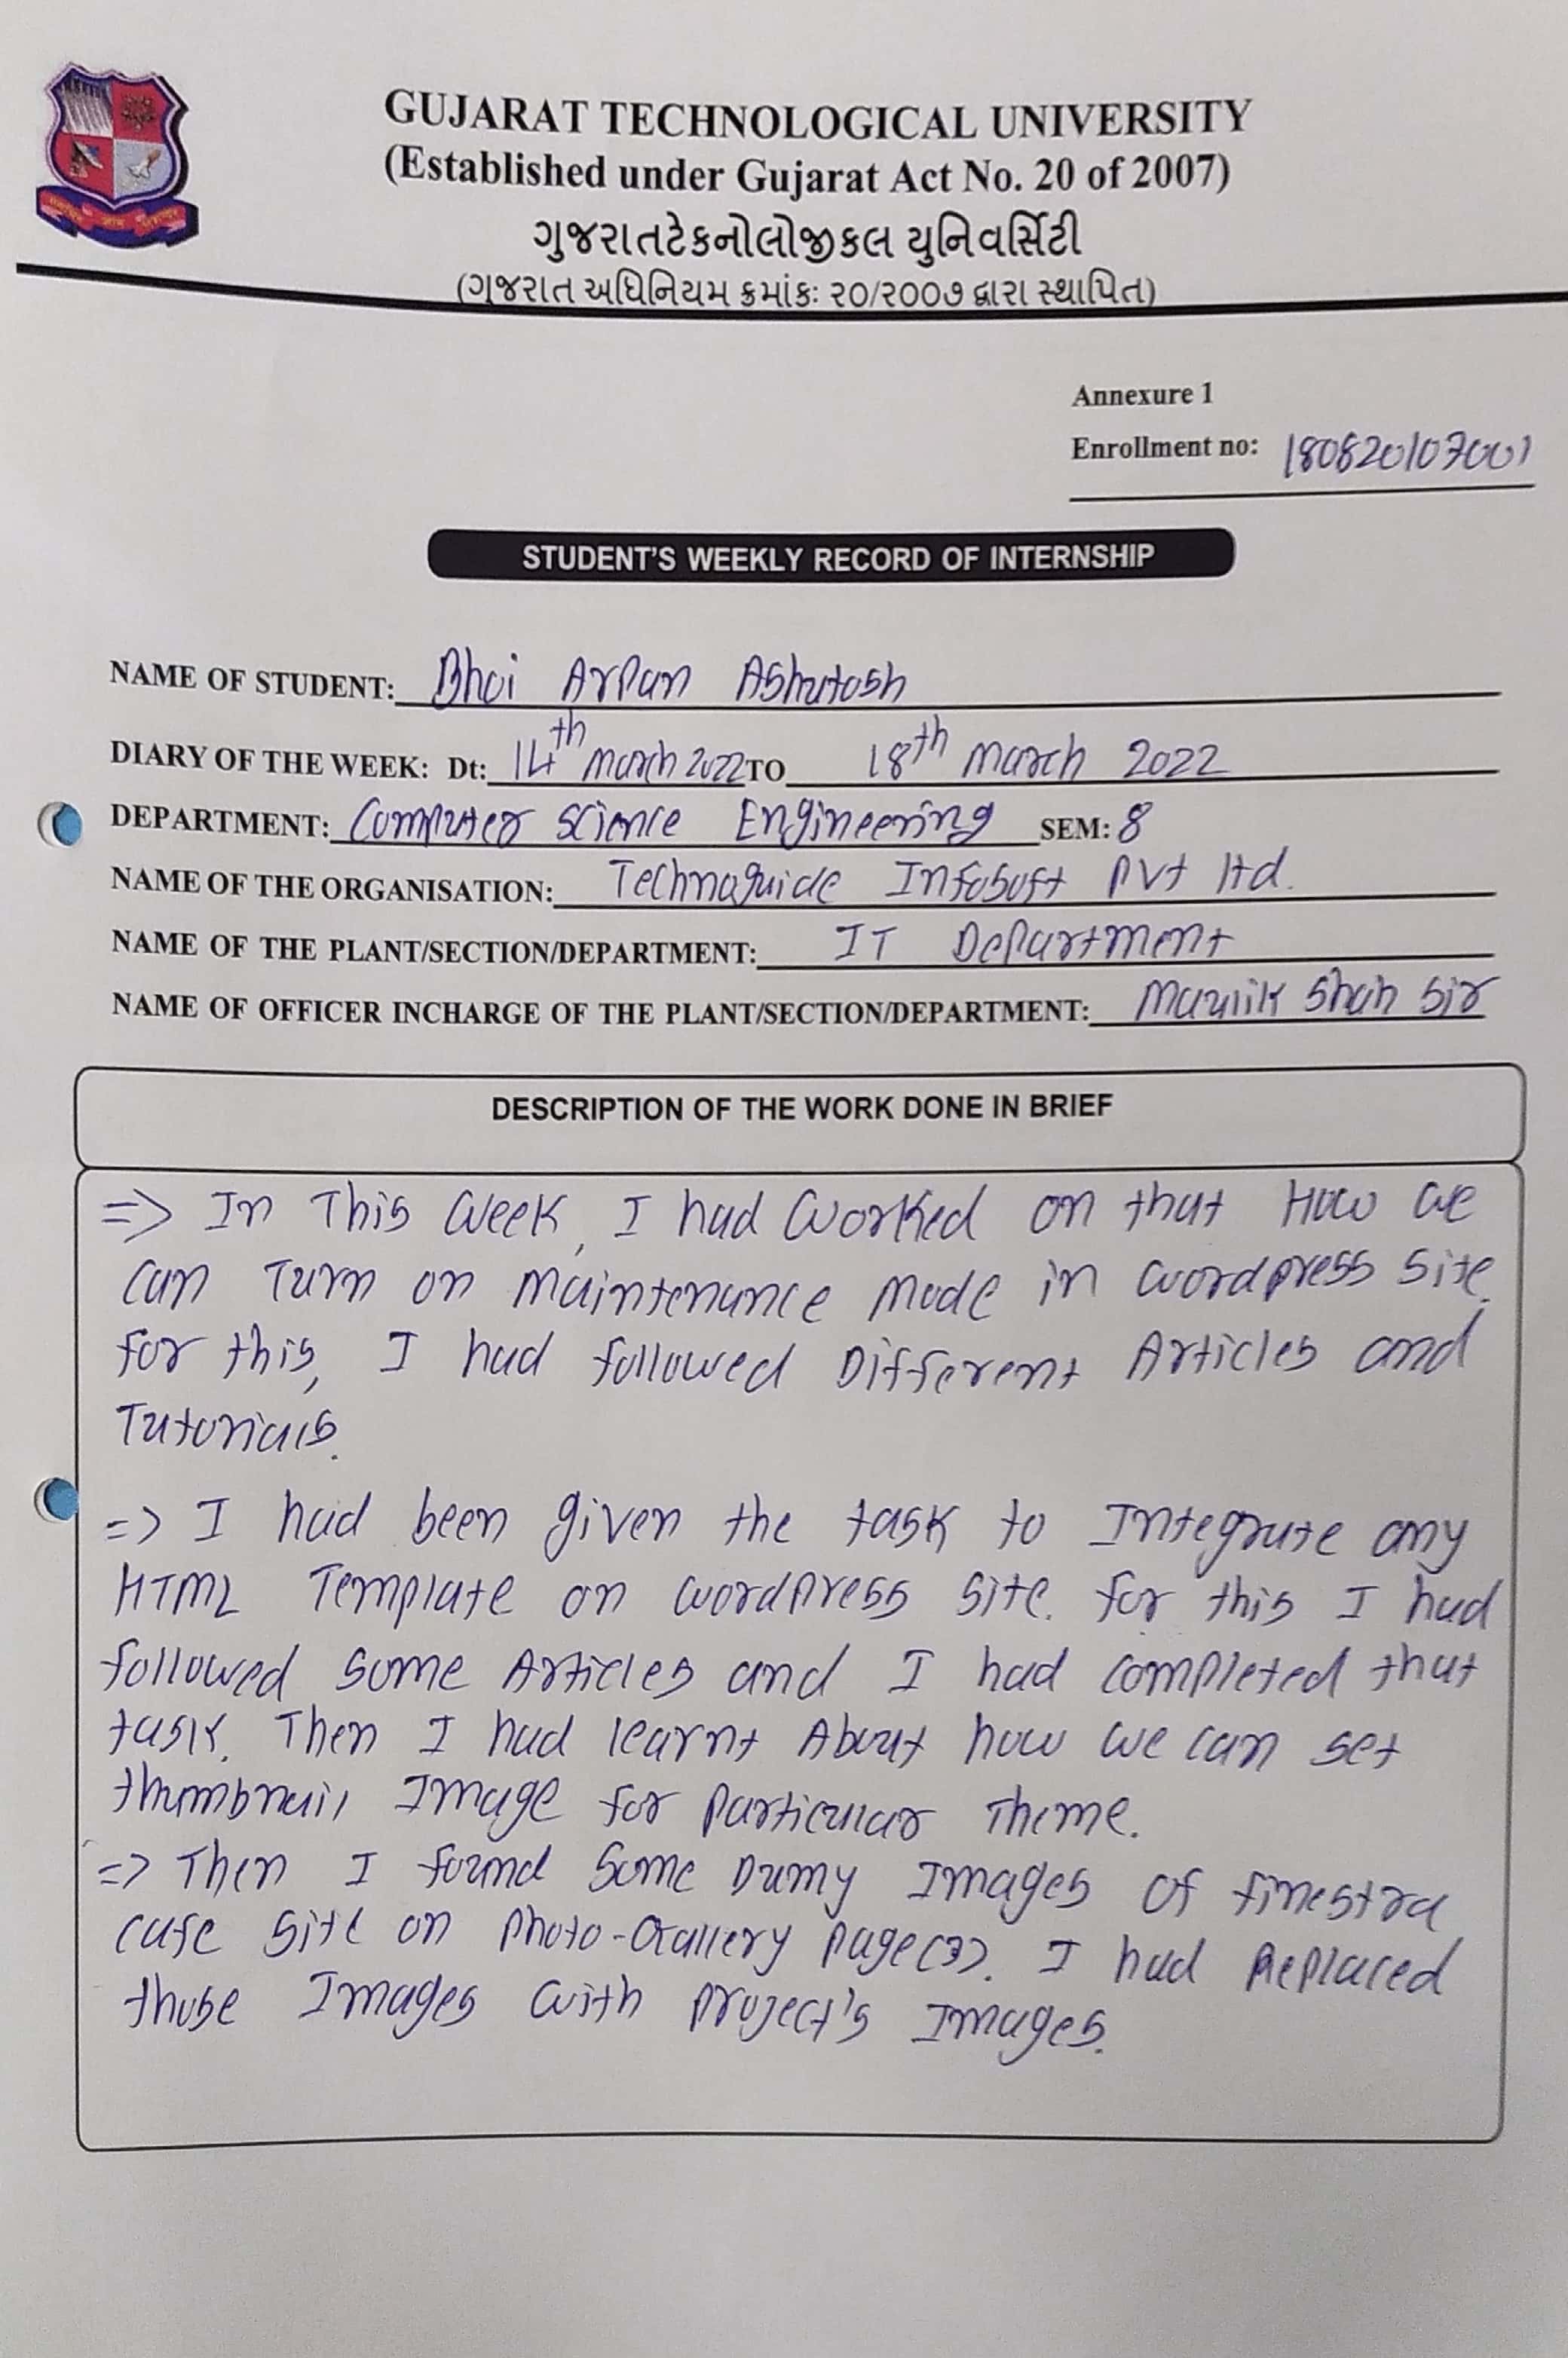 GUJARAT TECHNOLOGICAL UNIVERSITY
(Established under Gujarat Act No. 20 of 2007)
ગુજરાતટેકનોલોજીકલ યુનિવર્સિટી
(ગુજરાત અધિનિયમ ક્રમાંકઃ ૨૦/૨૦૦૭ દ્વારા સ્થાપિત)
Annexure 1
Enrollment no: 180820107001
STUDENT'S WEEKLY RECORD OF INTERNSHIP
NAME OF STUDENT: Bhoi Arpan Ashutosh
DIARY OF THE WEEK: Dt: 14th March 2022 TO 18th March 2022
DEPARTMENT: Computer Science Engineering SEM: 8
NAME OF THE ORGANISATION: Technoguide Infosoft Pvt ltd.
NAME OF THE PLANT/SECTION/DEPARTMENT: IT Department
NAME OF OFFICER INCHARGE OF THE PLANT/SECTION/DEPARTMENT: Maulik Shah Sir
DESCRIPTION OF THE WORK DONE IN BRIEF
=> In This Week, I had Worked on that How We
can Turn on Maintenance Mode in Wordpress Site.
for this, I had followed Different Articles and
Tutorials.
=> I had been given the task to Integrate any
HTML Template on Wordpress Site. for this I had
followed some Articles and I had completed that
task. Then I had learnt About how we can set
thumbnail Image for Particular Theme.
=> Then I found Some Dumy Images of finestra
cafe Site on Photo-Gallery Page(3). I had Replaced
those Images With Project's Images.